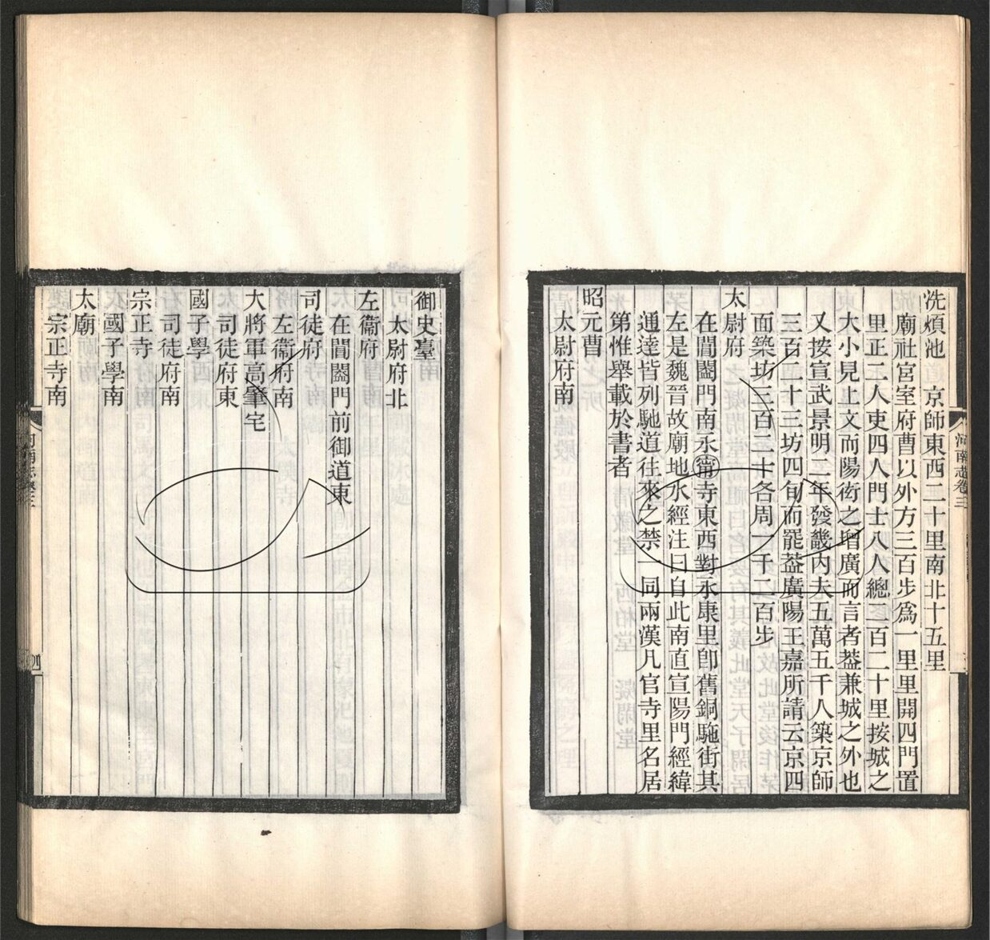 洗煩池　京師東西二十里南北十五里
廟社宮室府曹以外方三百步爲一里里開四門置
里正二人吏四人門士八人總三百二十里按城之
大小見上文而陽衒之增廣而言者葢兼城之外也
又按宣武景明二年發畿內夫五萬五千人築京師
三百二十三坊四旬而罷葢廣陽王嘉所請云京四
面築坊三百二十各周一千二百步
太尉府
在閶闔門南永寧寺東西對永康里卽舊銅駞街其
左是魏晉故廟地水經注曰自此南直宣陽門經緯
通達皆列馳道往來之禁一同兩漢凡官寺里名居
第惟舉載於書者
昭元曹
太尉府南
河南志卷三
御史臺
太尉府北
左衞府
在閶闔門前御道東
司徒府
左衞府南
大將軍高肇宅
司徒府東
國子學
司徒府南
宗正寺
國子學南
太廟
宗正寺南